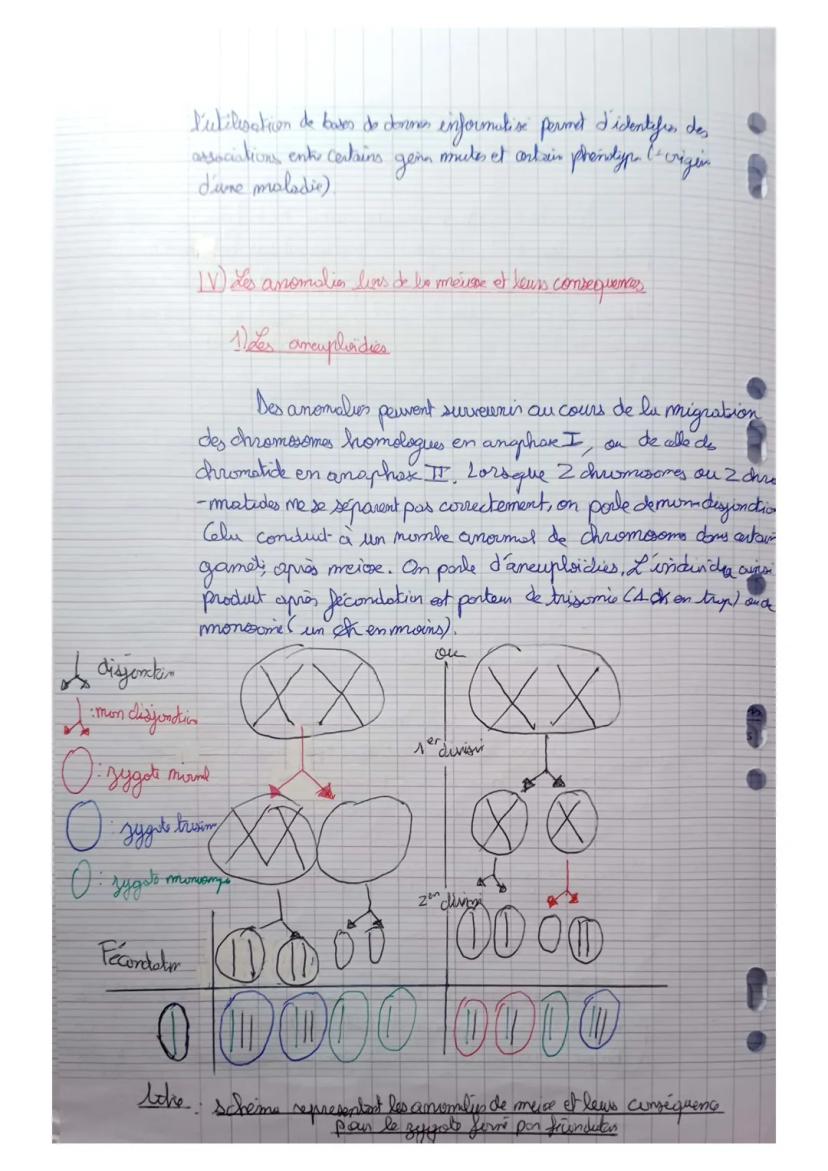 L'utilisation de bases de donnes informatise permet d'identifier des
associations entre certains gens mutes et certain phénotype (= origin
d'une maladie)
IV) Les anomalies lors de la méiose et leurs consequences
1) Les aneuploïdies
Des anomalies peuvent survenir au cours de la migration
des chromosomes homologues en anaphase I, ou de celle des
chromatide en anaphase II. Lorsque 2 chromosomes ou 2 chro
-matides ne se séparent pas correctement, on parle de non-disjonction
Cela conduit à un nombre anormal de chromosome dans certain
gamets après meiose. On parle d'aneuploïdies. L'individu ainsi
produit après fécondation est porteur de trisomie (1 ch en trop) ou de
monosomie (un ch en moins).
disjonction
ou
: non disjonction
1er division
: zygote normal
: zygote trisom
: zygote monosomique
2em division
Fécondation
titre : schéma representant les anomalies de meiose et leurs conséquence
pour le zygote formé par fécondation